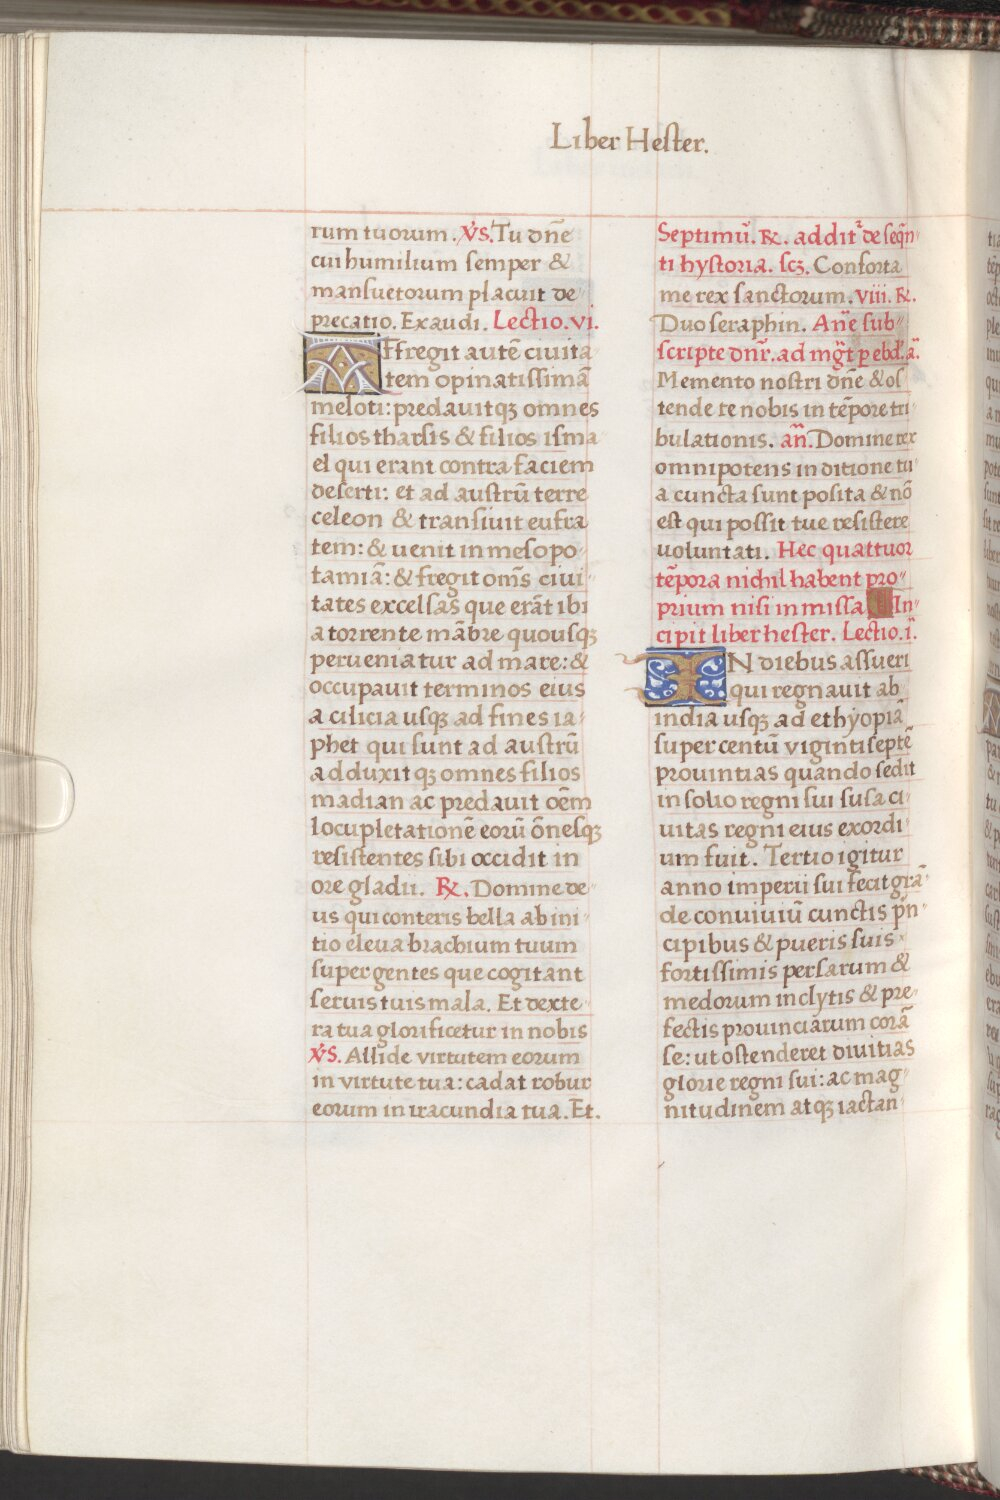 Liber Hester.
rum tuorum. V̇S. Tu dn̄e
cui humilium semper &
mansuetorum placuit de
precatio. Exaudi. Lectio. vi.
Affregit autē ciuita
tem opinatissimā
meloti: predauitqꝫ omnes
filios tharsis & filios isma
el qui erant contra faciem
deserti: et ad austrū terre
celeon & transiuit eufra
tem: & uenit in mesopo
tamiā: & fregit om̄s ciui
tates excelsas que erāt ibi
a torrente mābre quousqꝫ
perueniatur ad mare: &
occupauit terminos eius
a cilicia usqꝫ ad fines ia
phet qui sunt ad austrū
adduxitqꝫ omnes filios
madian ac predauit oēm
locupletationē eorū ōnesqꝫ
resistentes sibi occidit in
ore gladii. ℟. Domine de
us qui conteris bella ab ini
tio eleua brachium tuum
super gentes que cogitant
seruis tuis mala. Et dexte
ra tua glorificetur in nobis
V̇S. Allide virtutem eorum
in virtute tua: cadat robur
eorum in iracundia tua. Et.
Septimū. ℟. addit᷑ de seqn̄
ti hystoria. scꝫ. Conforta
me rex sanctorum. viii. ℟.
Duo seraphin. An̄e sub
scripte dn̄r. ad mḡt p ebd. ā.
Memento nostri dn̄e & os
tende te nobis in tēpore tri
bulationis. an̄. Domine rex
omnipotens in ditione tu
a cuncta sunt posita & nō
est qui possit tue resistere
uoluntati. Hec quattuor
tēpora nichil habent pro
prium nisi in missa In
cipit liber hester. Lectio. i.
IN diebus assueri
qui regnauit ab
india usqꝫ ad ethyopiā
super centū viginti septē
prouintias quando sedit
in solio regni sui susa ci
uitas regni eius exordi
um fuit. Tertio igitur
anno imperii sui fecit grā
de conuiuiū cunctis pn̄
cipibus & pueris suis
fortissimis persarum &
medorum inclytis & pre
fectis prouinciarum corā
se: ut ostenderet diuitias
glorie regni sui: ac mag
nitudinem atqꝫ iactan